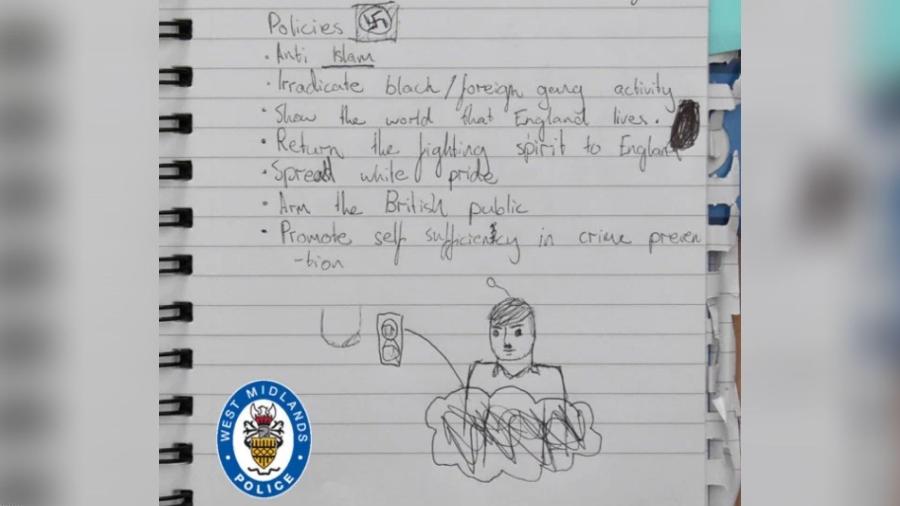 Policies
· Anti Islam
· Irradicate black/foreign gang activity
· Show the world that England lives.
· Return the fighting spirit to England
· Spread white pride
· Arm the British public
· Promote self sufficiency in crime preven
-tion
WEST MIDLANDS
POLICE